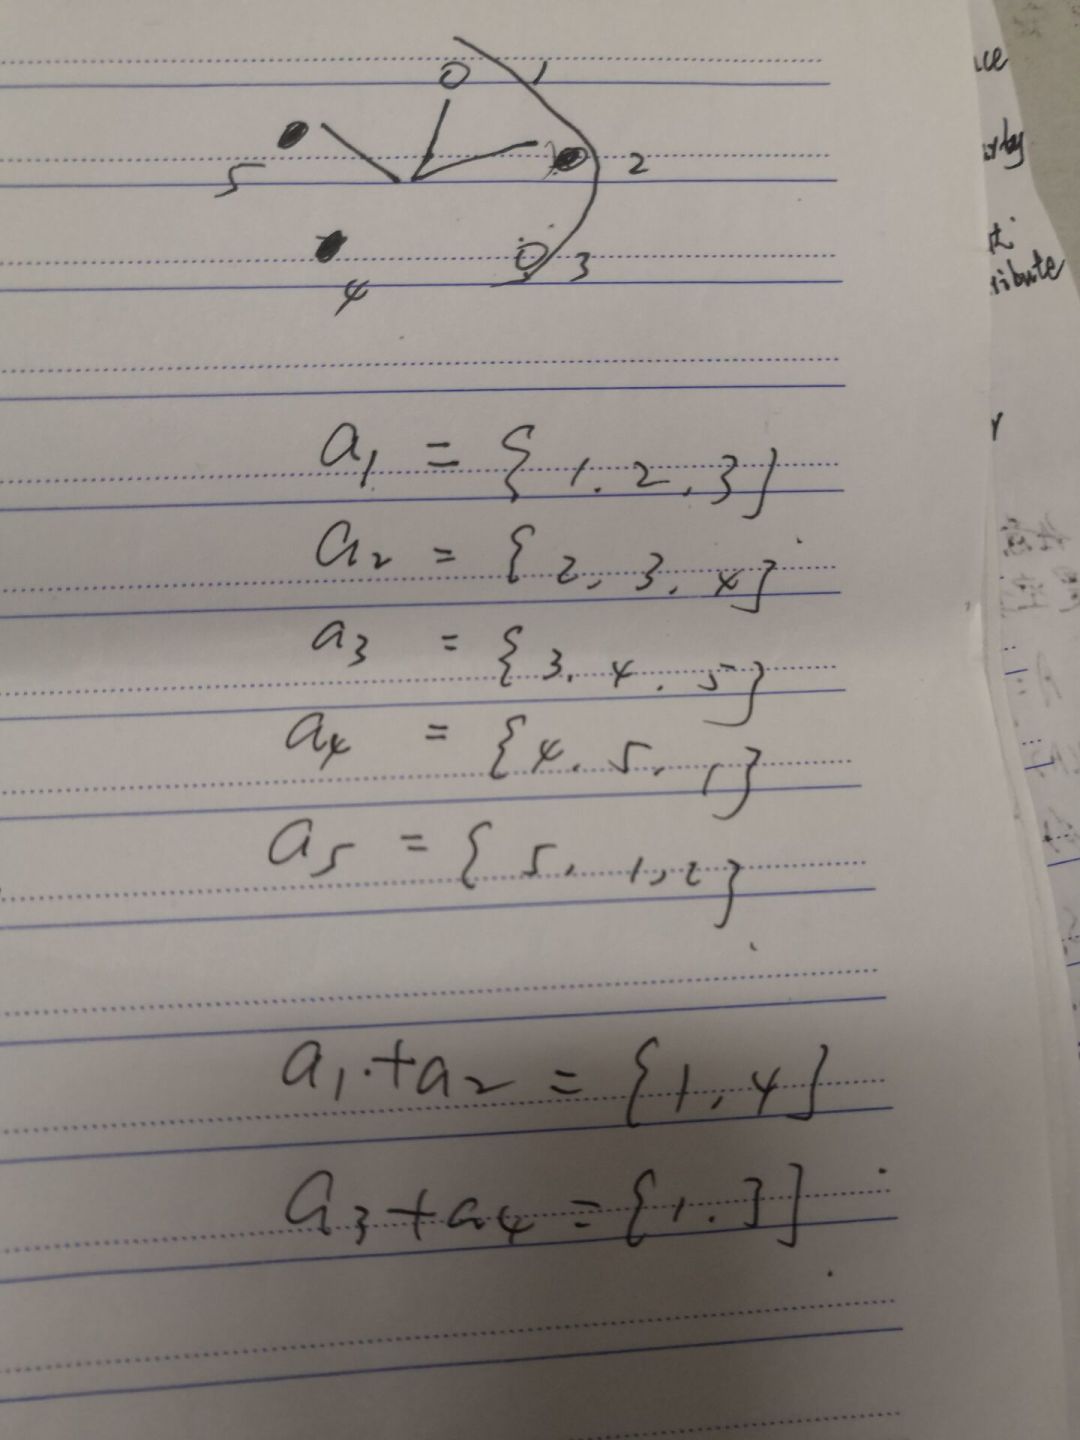 1
2
5
3
4
a1 = {1, 2, 3}
a2 = {2, 3, 4}
a3 = {3, 4, 5}
a4 = {4, 5, 1}
a5 = {5, 1, 2}
a1 + a2 = {1, 4}
a3 + a4 = {1, 3}
ribute